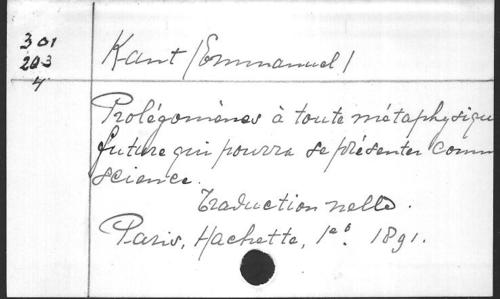 301
203
4
Kant (Emmanuel)
Prolégomènes à toute métaphysiqu
future qui pourra se présenter comm
science.
Traduction nelle.
Paris, Hachette, 1891.